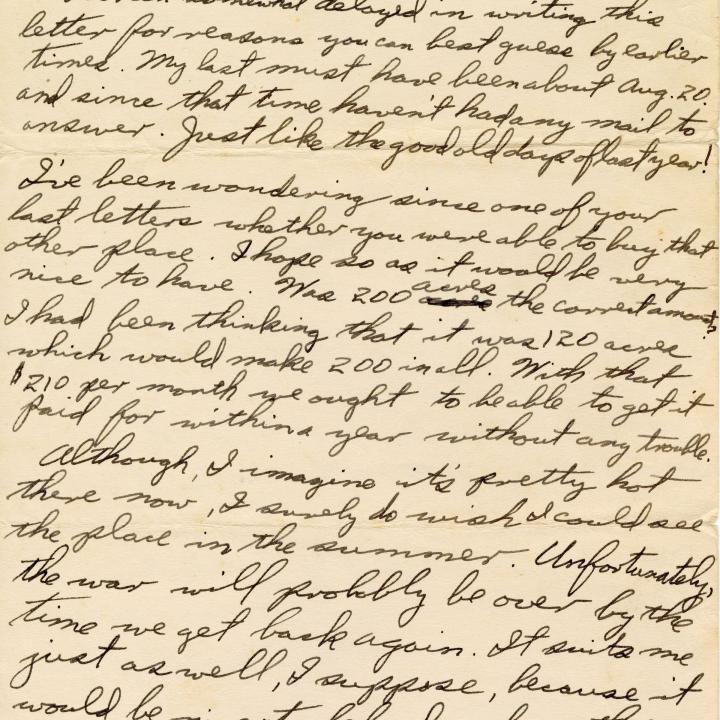 somewhat delayed in writing this
letter for reasons you can best guess by earlier
times. My last must have been about Aug. 20.
and since that time haven't had any mail to
answer. Just like the good old days of last year!
I've been wondering since one of your
last letters whether you were able to buy that
other place. I hope so as it would be very
nice to have. Was 200 acres the correct amount?
I had been thinking that it was 120 acres
which would make 200 in all. With that
$210 per month we ought to be able to get it
paid for within a year without any trouble.
Although, I imagine it's pretty hot
there now, I surely do wish I could see
the place in the summer. Unfortunately,
the war will probably be over by the
time we get back again. It suits me
just as well, I suppose, because it
would be